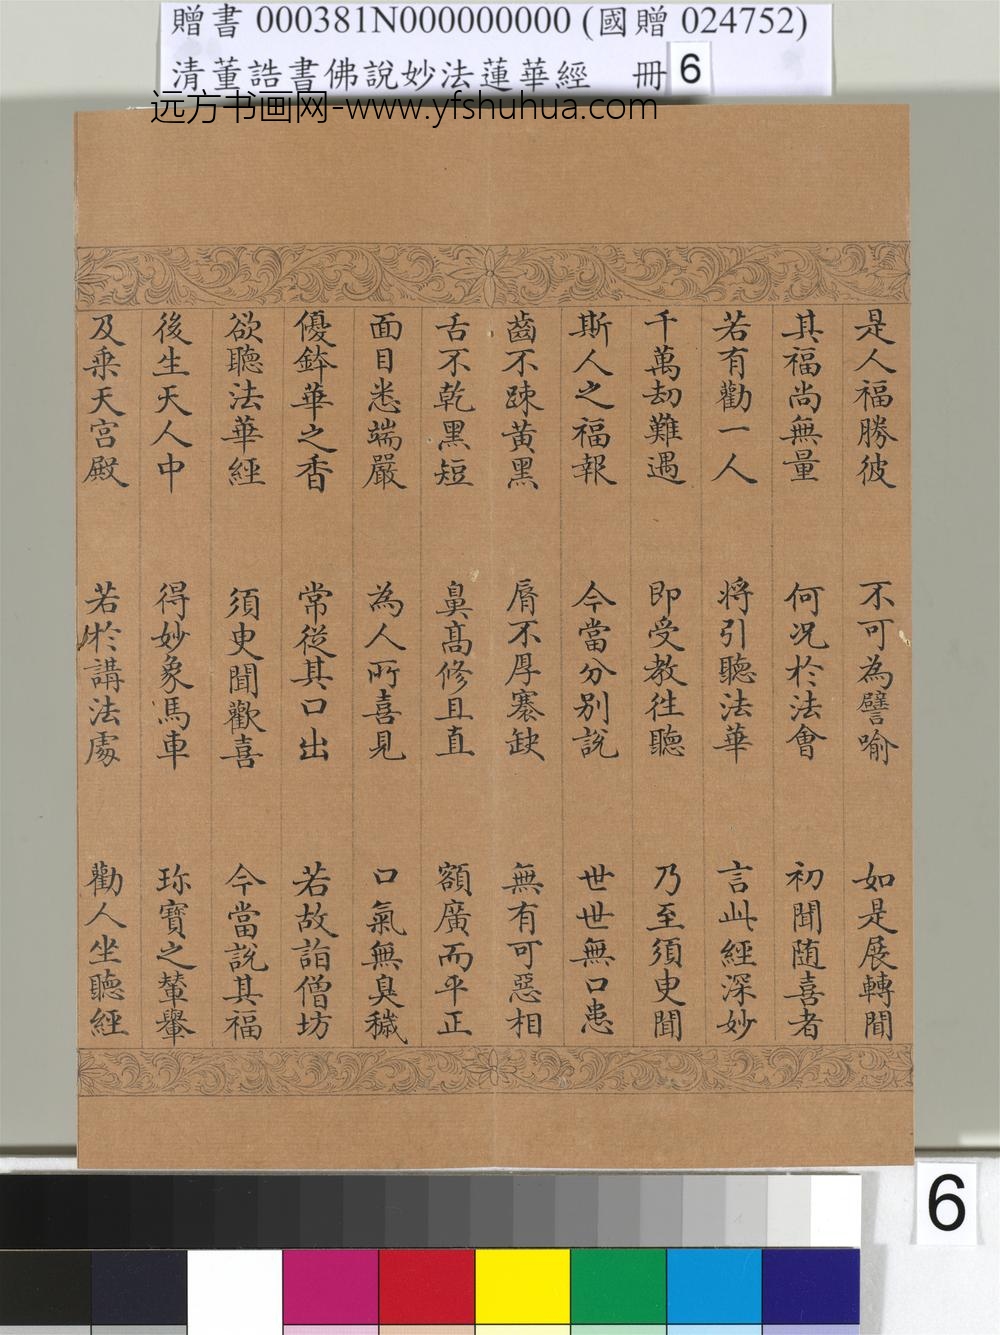 贈書 000381N000000000 (國贈 024752)
清董誥書佛說妙法蓮華經 冊 6
远方书画网-www.yfshuhua.com
是人福勝彼 不可為譬喻 如是展轉聞
其福尚無量 何況於法會 初聞随喜者
若有勸一人 将引聽法華 言此經深妙
千萬劫難遇 即受教徃聽 乃至須臾聞
斯人之福報 今當分别說 世世無口患
齒不踈黃黑 脣不厚褰缺 無有可惡相
舌不乾黑短 鼻髙修且直 額廣而平正
面目悉端嚴 為人所喜見 口氣無臭穢
優鉢華之香 常從其口出 若故詣僧坊
欲聽法華經 須臾聞歡喜 今當說其福
後生天人中 得妙象馬車 珎寶之輦轝
及乘天宮殿 若於講法處 勸人坐聽經
6